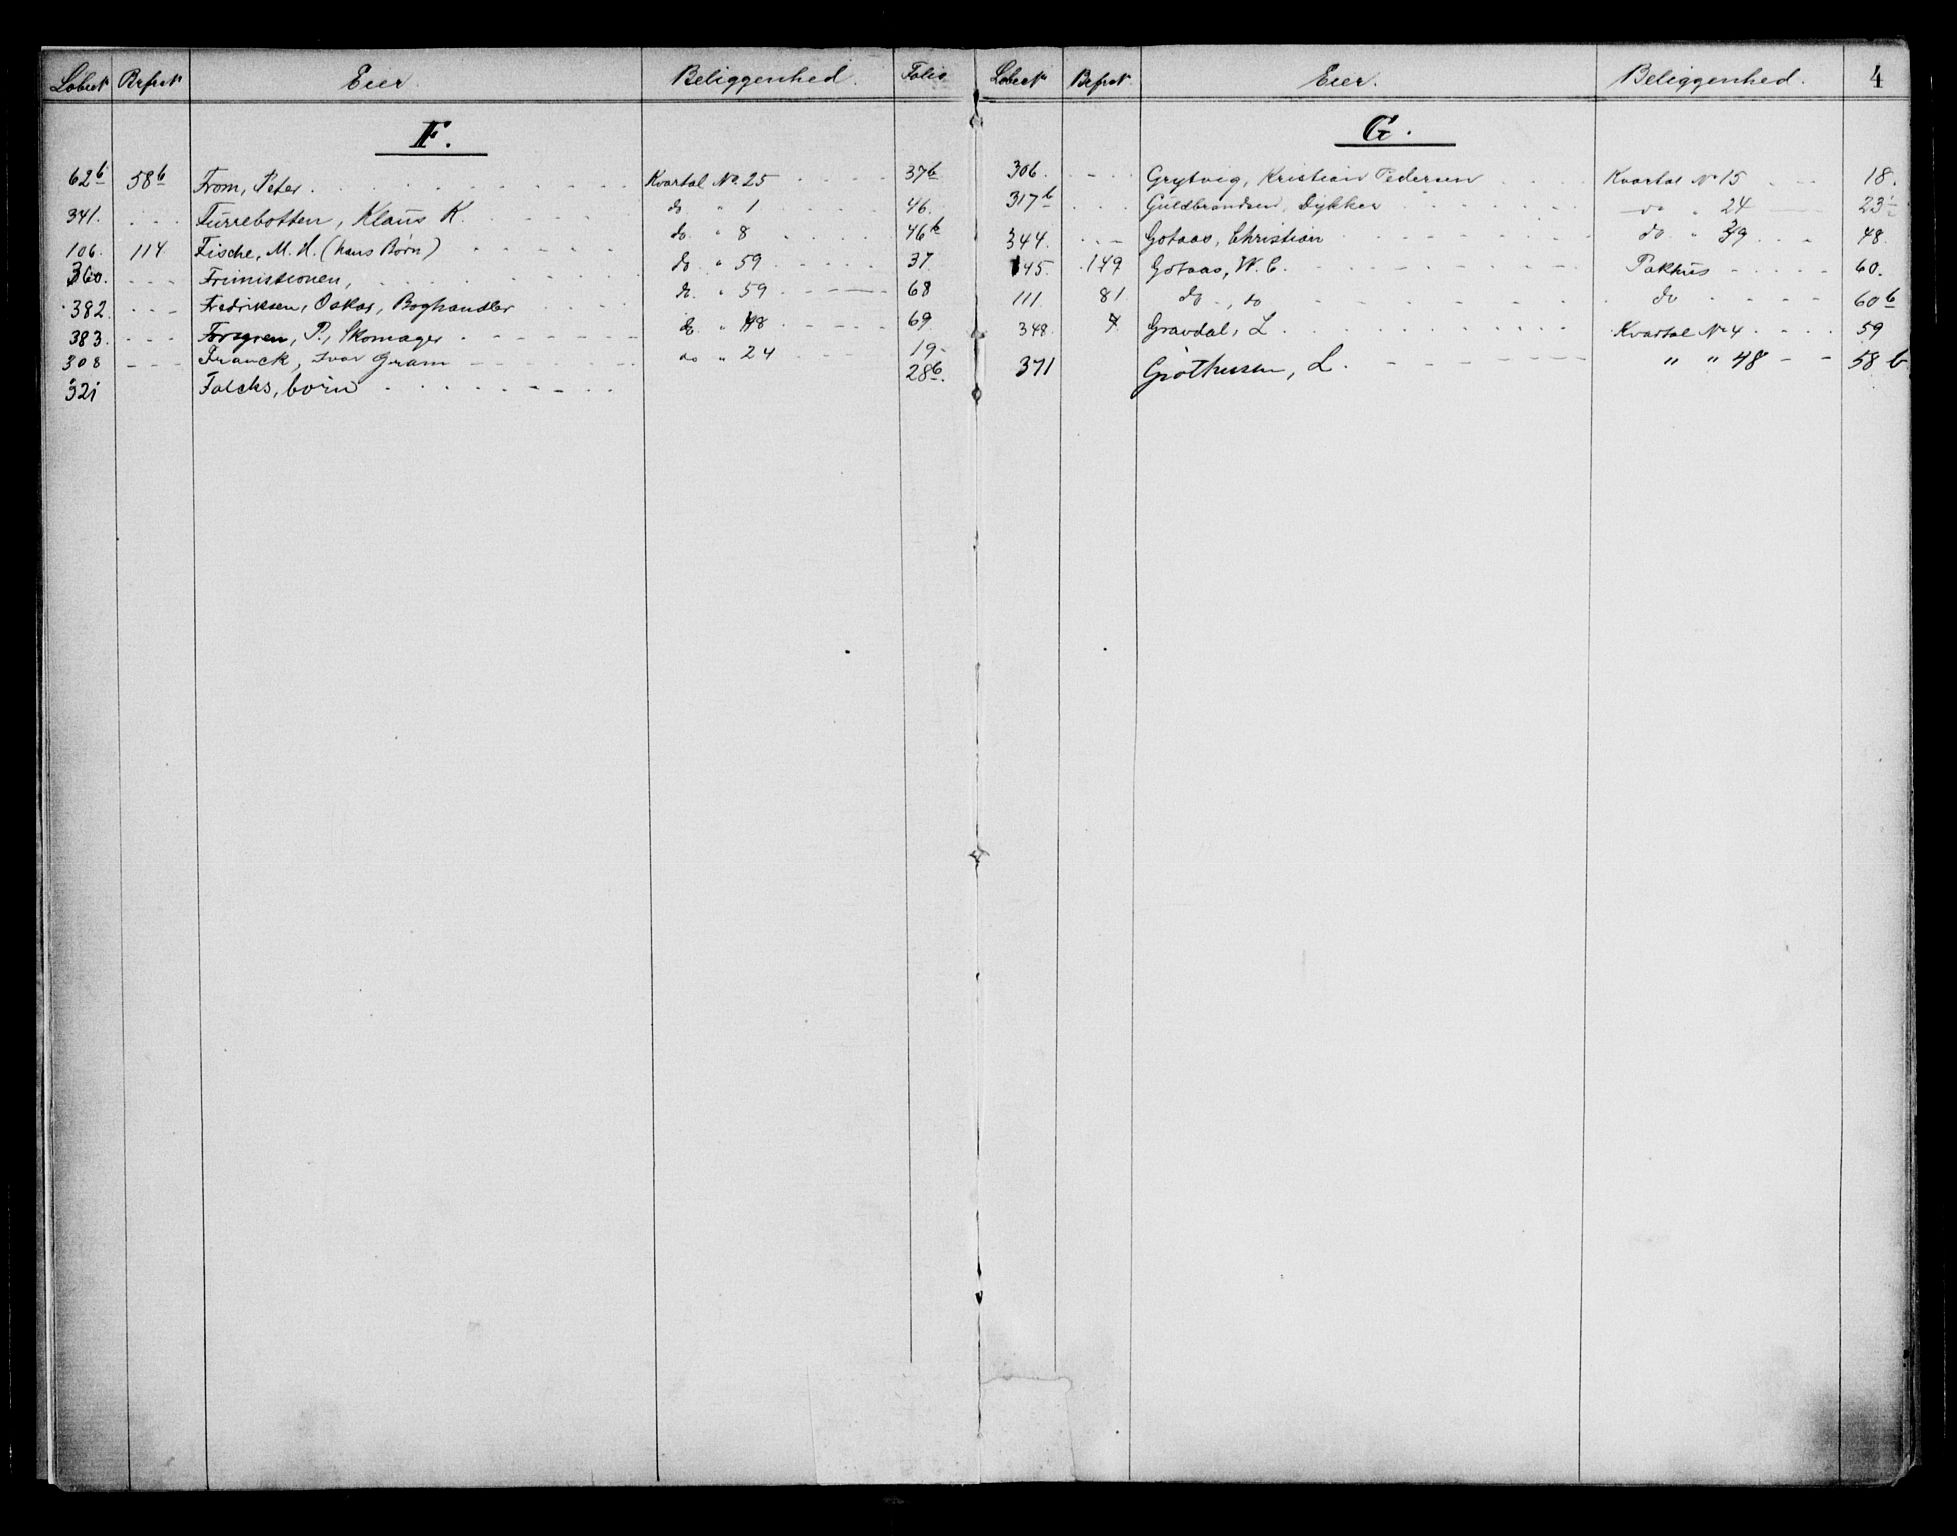 Løbenr Brfnr Eier. Beliggenhed. Folio
F.
62b 58b From, Peter Kvartal No. 25 37b
341. Furrebotten, Klaus K. do " 1 46.
106. 114 Fische, M. H. (hans Børn) do " 8 46b
360. Frimistionen, do " 59 37
382 Fredriksen, Oskar, Boghandler do " 59 68
383. Forsgren, P., Skomager do " 48 69
308 Franck, Ivar Gram do " 24 19
321 Falcks, børn 28b.
Løbenr Brfnr. Eier. Beliggenhed. 4
G.
306. Grytvig, Kristian Pedersen Kvartal No 15 18.
317b Guldbrandsen, Dykker do " 24 23b
344. Gotaas, Christian do " 39 48.
145. 149 Gotaas, W. C. Pakhus 60.
111. 81 do, do do 60b
348. 7. Gravdal, L. Kvartal No 4 59
371 Grøthussen, L. " " 48 58 b